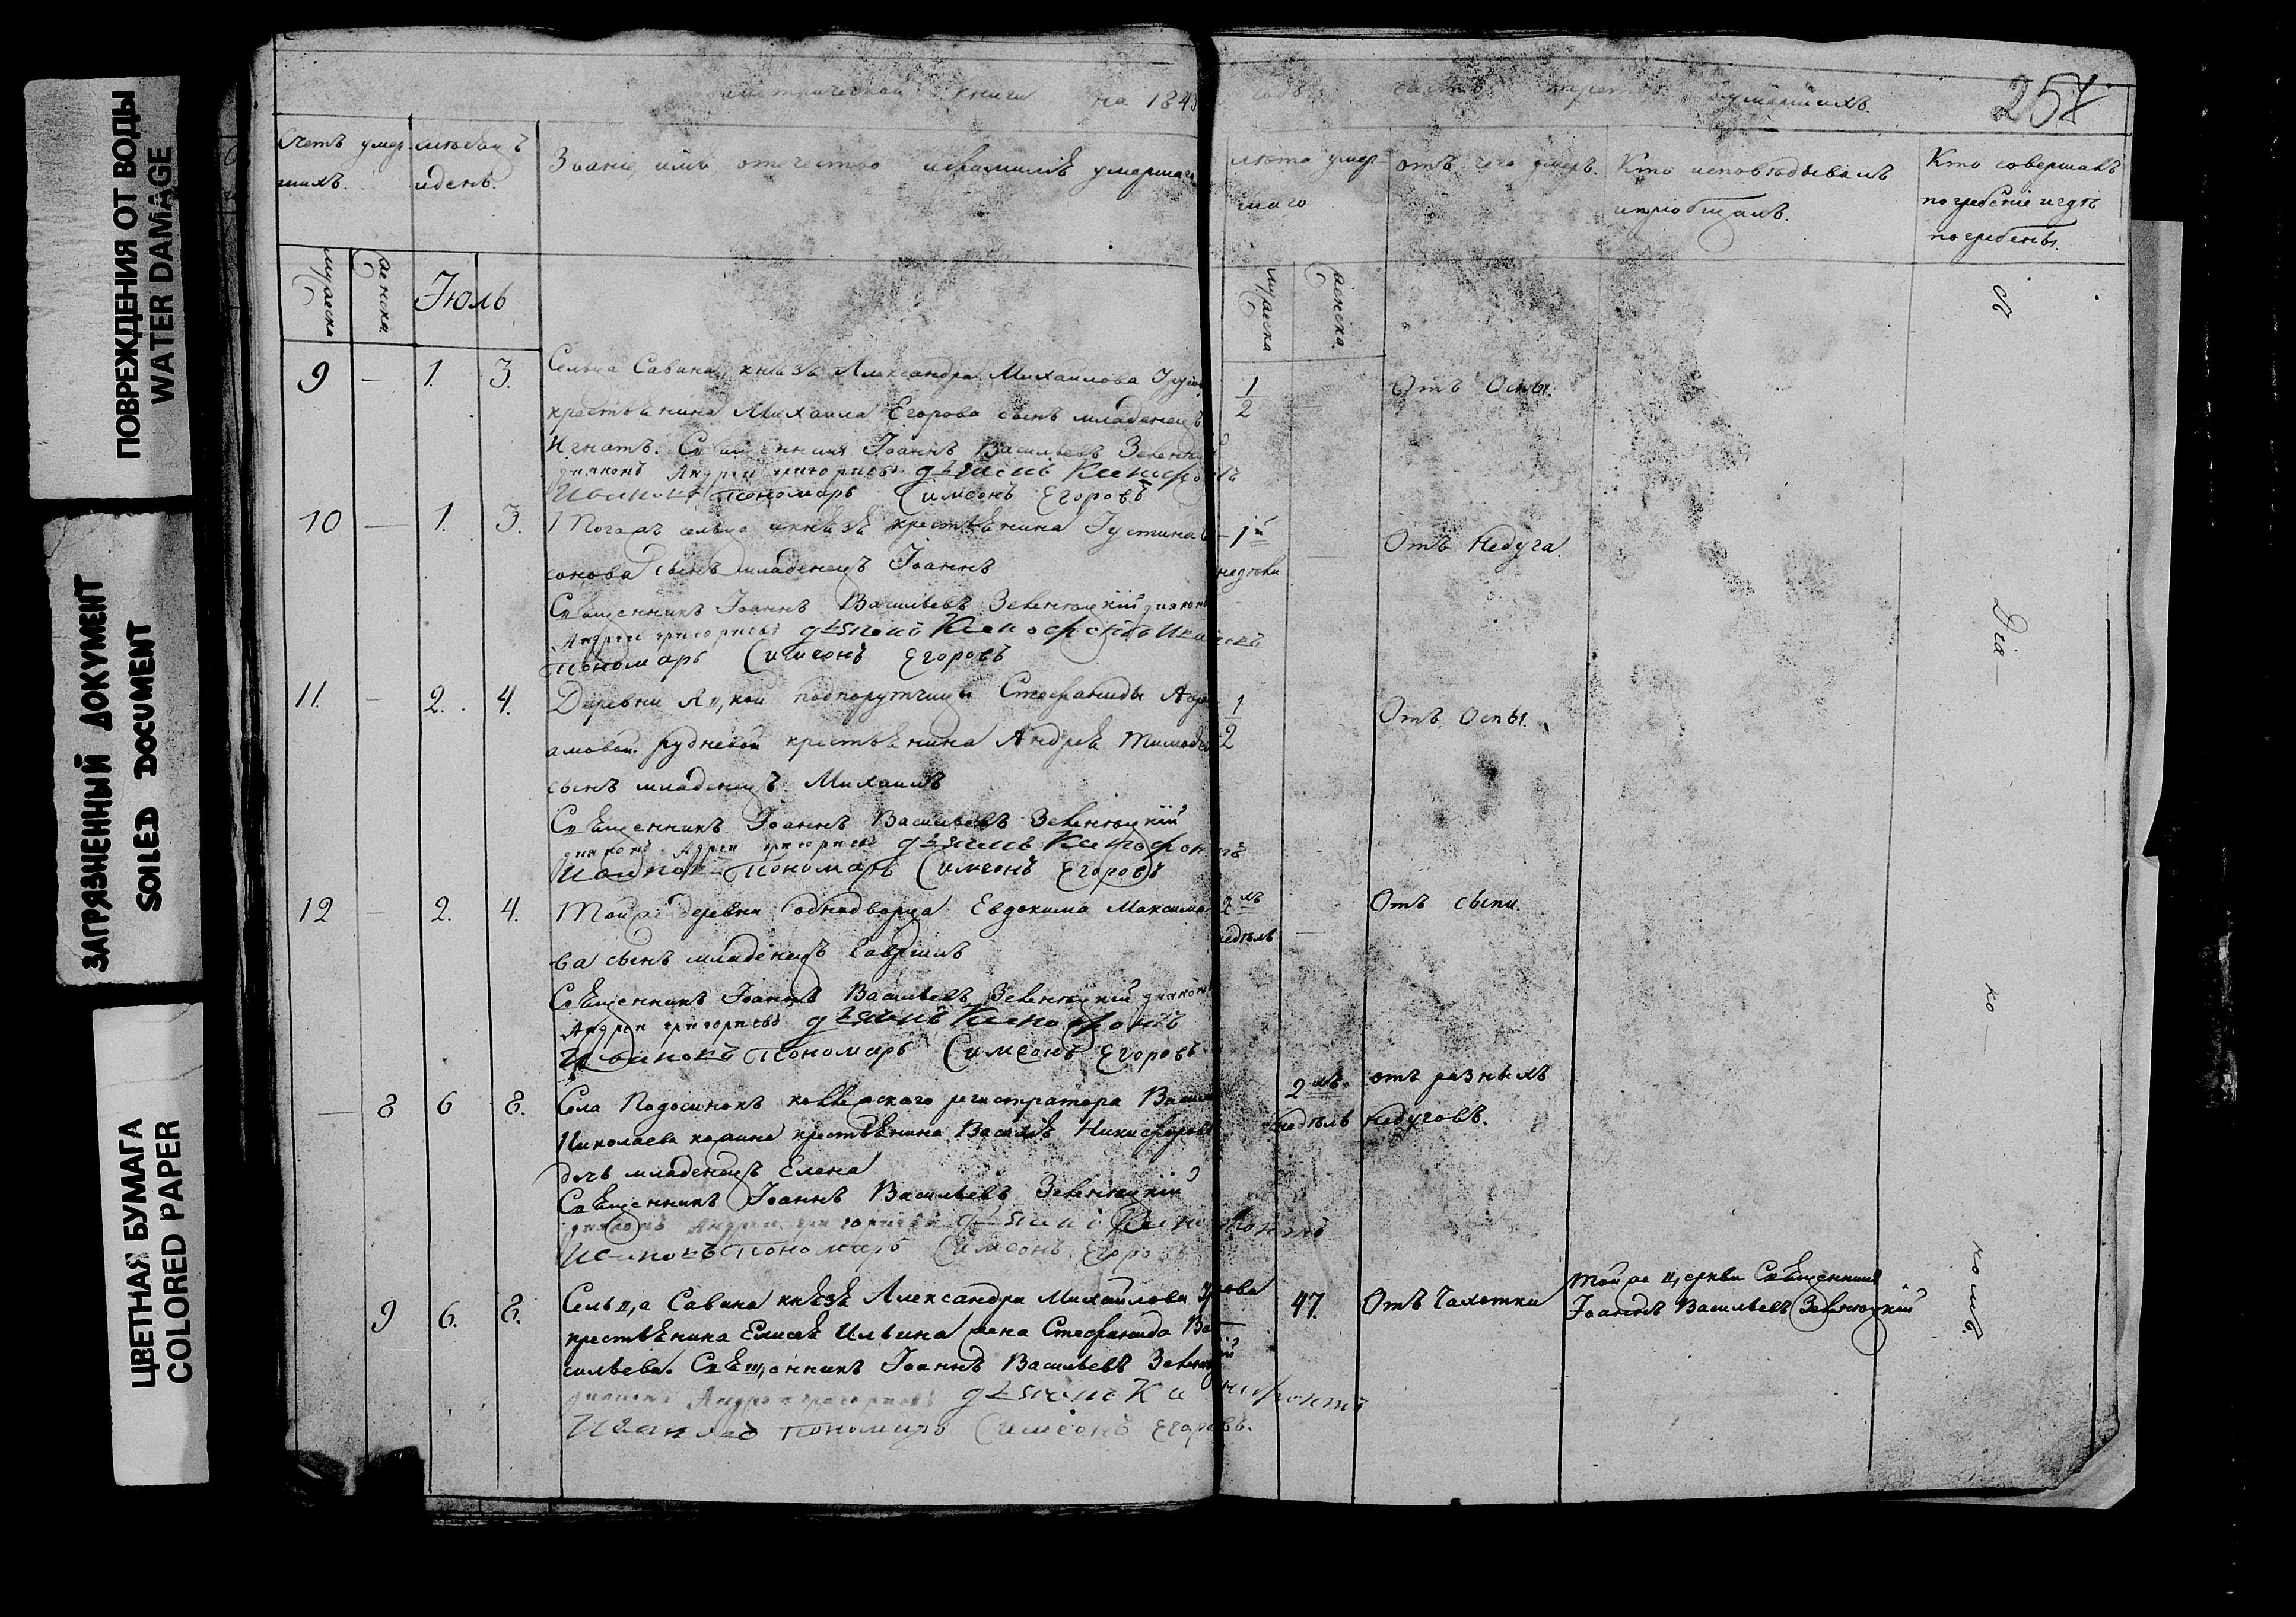 ПОВРЕЖДЕНИЯ ОТ ВОДЫ
WATER DAMAGE
ЗАГРЯЗНЕННЫЙ ДОКУМЕНТ
SOILED DOCUMENT
ЦВЕТНАЯ БУМАГА
COLORED PAPER
метрической книги на 1843 года часть умершихъ.
257
Счетъ умершихъ.
мѣсяцъ и день.
Званіе, имя отечество и фамилія умершаго
лѣта умершаго
отъ чего умеръ.
Кто исповѣдывалъ и приобщалъ.
Кто совершалъ погребеніе и гдѣ погребены.
мужеска
женска.
Іюль
мужеска
женска.
9 — 1. 3. Сельца Савина князя Александра Михайлова
крестьянина Михаила Егорова сынъ младенецъ
Игнатъ. Священникъ Іоаннъ Васильевъ
диаконъ Андрей Григорьевъ дьячекъ Ксенофонтъ
Ивановъ пономарь Симеонъ Егоровъ
1/2 Отъ Оспы.
10 — 1. 3. сельца князя крестьянина Іустина
сонова сынъ младенецъ Іоаннъ
Священникъ Іоаннъ Васильевъ диаконъ
Андрей Григорьевъ дьячекъ Ксенофонтъ
пономарь Симеонъ Егоровъ
1й недѣли Отъ Недуга.
11. — 2. 4. Деревни подпорутчицы Стефаниды
Рудневой крестьянина Андрея
сынъ младенецъ Михаилъ
Священникъ Іоаннъ Васильевъ
диаконъ Андрей Григорьевъ дьячекъ Ксенофонтъ
Ивановъ пономарь Симеонъ Егоровъ
1/2 Отъ Оспы.
12 — 2. 4. Той же деревни однодворца Евдокима Максимо
ва сынъ младенецъ Гавріилъ
Священникъ Іоаннъ Васильевъ диаконъ
Андрей Григорьевъ дьячекъ Ксенофонтъ
Ивановъ пономарь Симеонъ Егоровъ
2хъ недѣль Отъ сыпи.
— 8 6 8. Села Подосинокъ регистратора
Николаева крестьянина Василья Никифорова
дочь младенецъ Елена
Священникъ Іоаннъ Васильевъ
диаконъ Андрей Григорьевъ дьячекъ Ксенофонтъ
Ивановъ пономарь Симеонъ Егоровъ
2хъ недѣль отъ разныхъ недуговъ.
9 6. 8. Сельца Савина князя Александра Михайлова
крестьянина Елисея Ильина жена Стефанида Ва
сильева. Священникъ Іоаннъ Васильевъ
диаконъ Андрей Григорьевъ дьячекъ Ксенофонтъ
Ивановъ пономарь Симеонъ Егоровъ.
47. Отъ Чахотки
Той же церкви Священникъ
Іоаннъ Васильевъ
съ
Діа—
ко—
номъ.